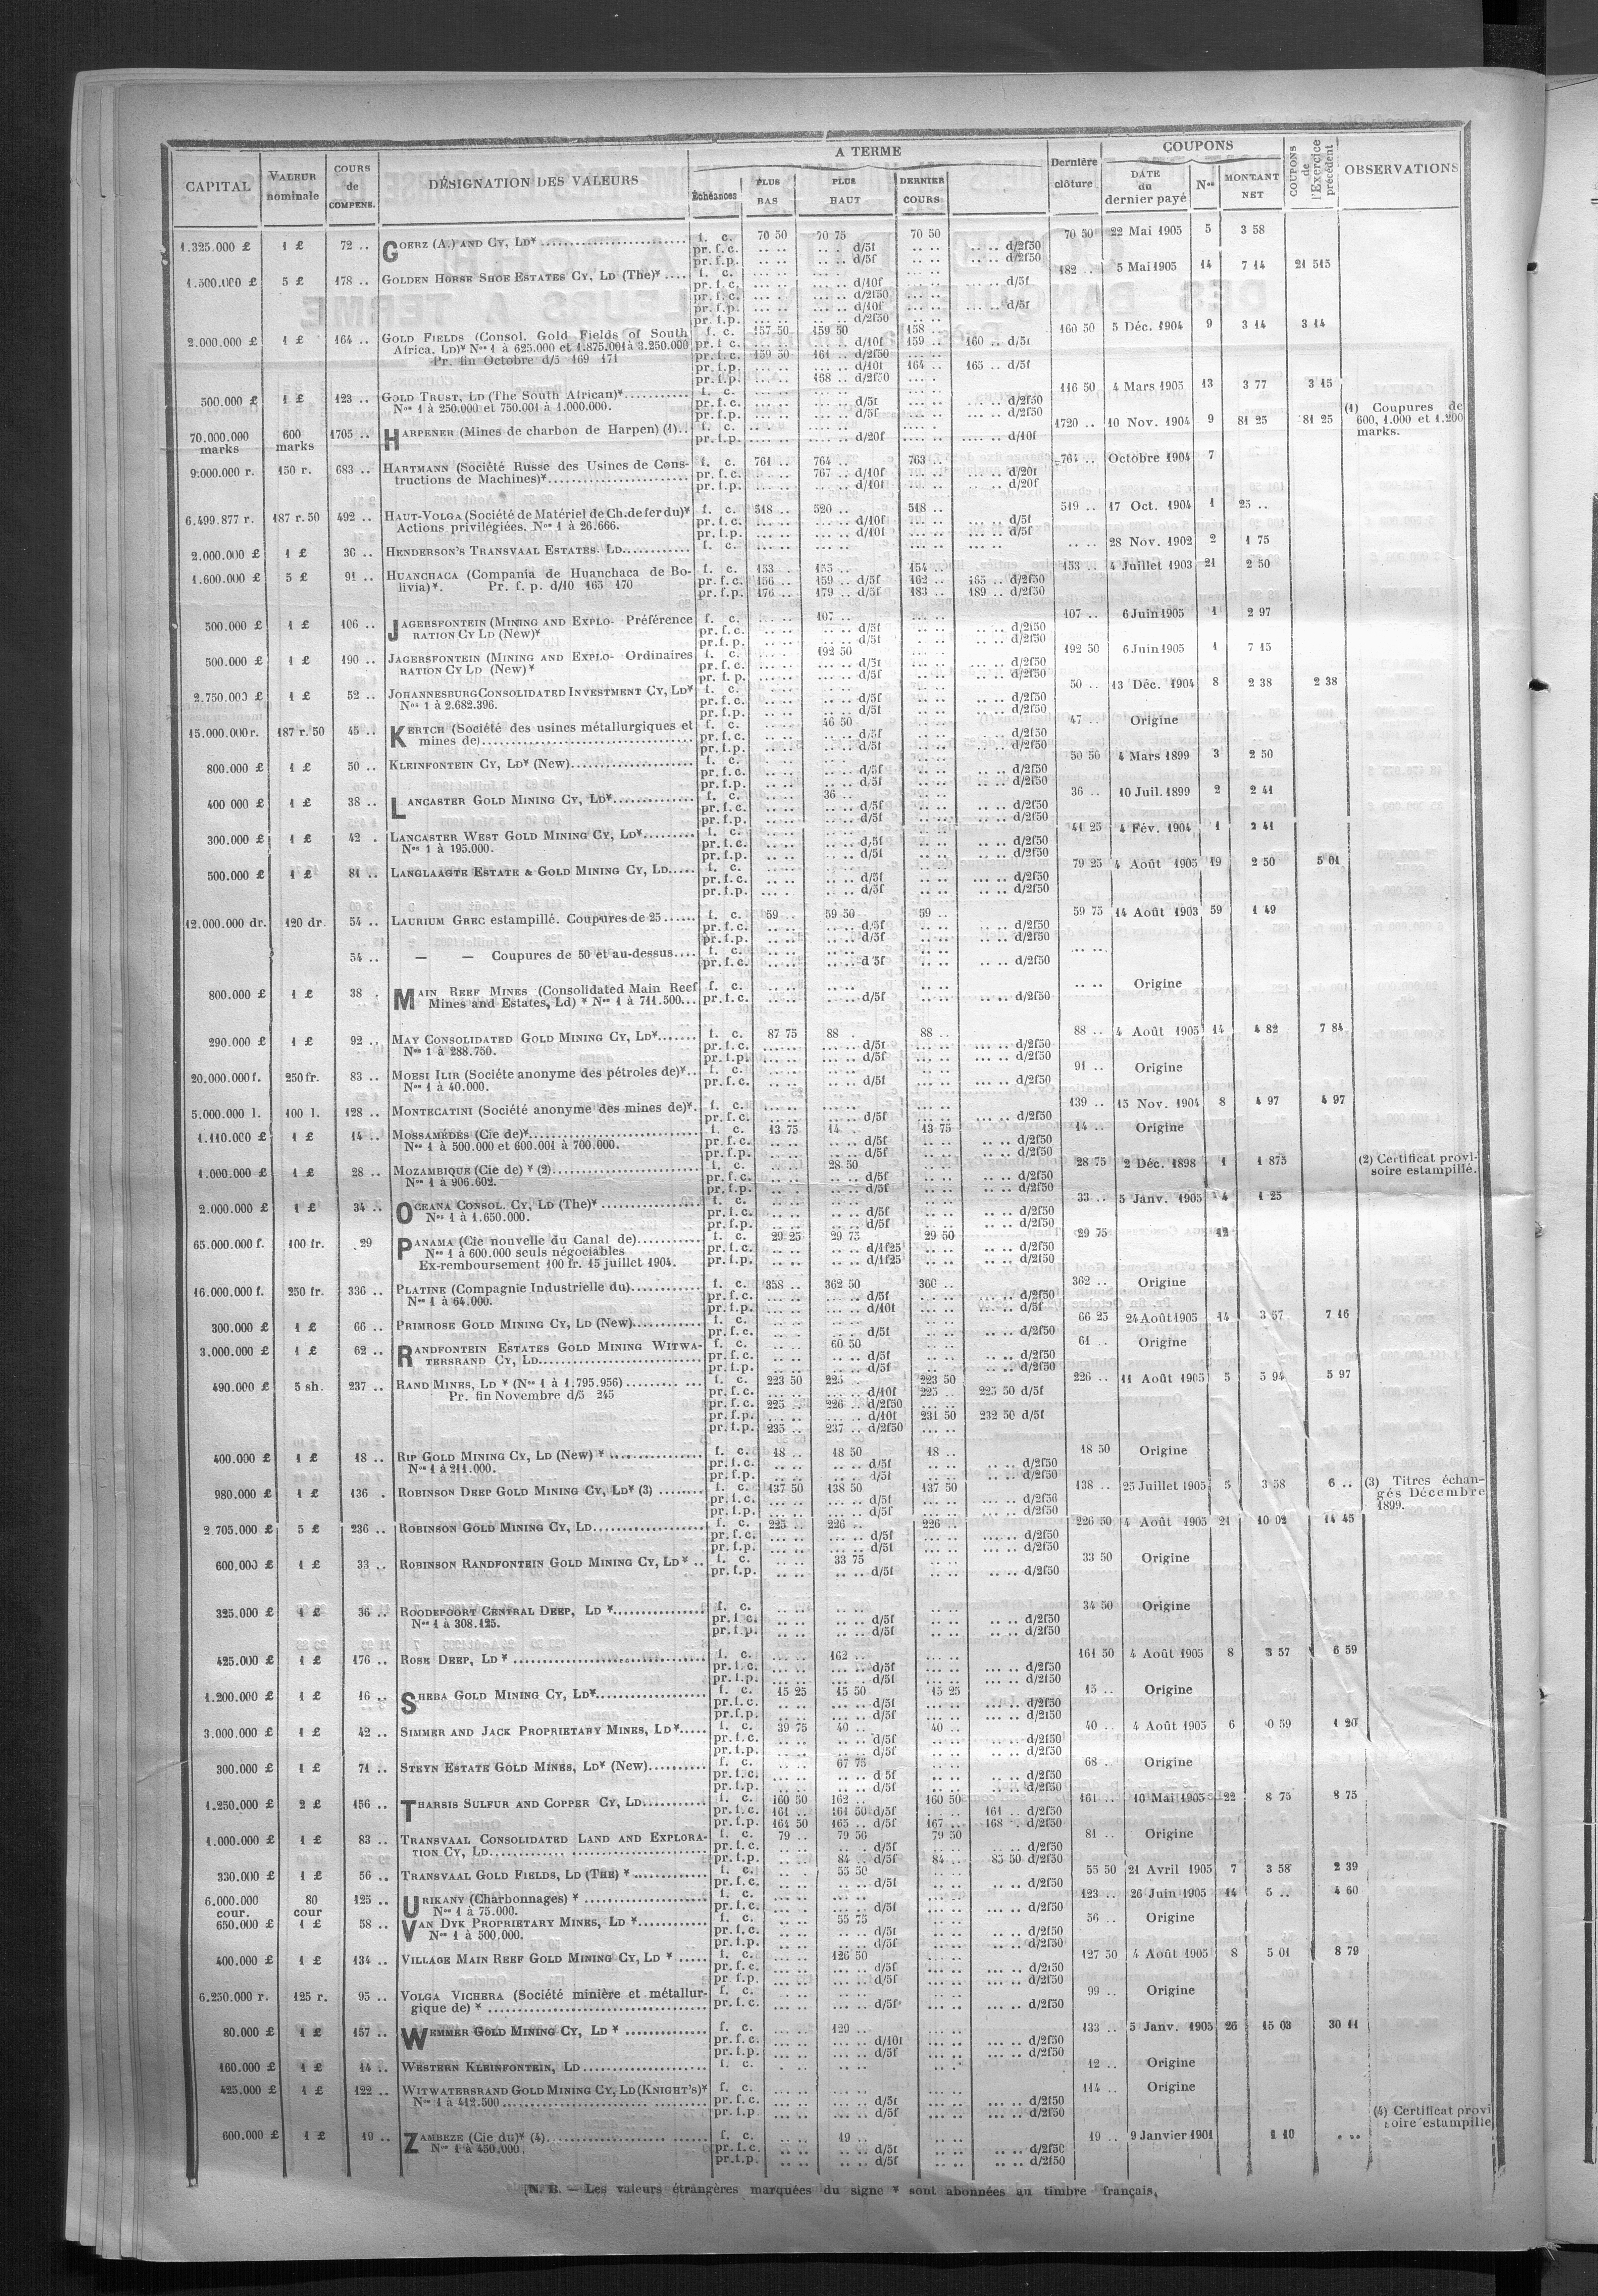 CAPITAL | VALEUR nominale | COURS de COMPENS. | DÉSIGNATION DES VALEURS | A TERME | Échéances | PLUS BAS | PLUS HAUT | DERNIER COURS | Dernière clôture | COUPONS | DATE du dernier payé | Nos | MONTANT NET | COUPONS de l'Exercice précédent | OBSERVATIONS
1.325.000 £ | 1 £ | 72 .. | GOERZ (A.) AND CY, LD* | f. c. | 70 50 | 70 75 | 70 50 | 70 50 | 22 Mai 1905 | 5 | 3 58
pr. f. c. | d/5f | d/2f50
pr. f. p. | d/5f | d/2f50
1.500.000 £ | 5 £ | 178 .. | GOLDEN HORSE SHOE ESTATES CY, LD (The)* | f. c. | 182 .. | 5 Mai 1905 | 14 | 7 14 | 21 515
pr. f. c. | d/10f | d/5f
pr. f. c. | d/2f50
pr. f. p. | d/10f | d/5f
pr. f. p. | d/2f50
2.000.000 £ | 1 £ | 164 .. | GOLD FIELDS (Consol. Gold Fields of South | f. c. | 157 50 | 159 50 | 158 .. | 160 50 | 5 Déc. 1904 | 9 | 3 14 | 3 14
Africa, Ld)* Nos 1 à 625.000 et 1.875.001 à 3.250.000 | pr. f. c. | d/10f | 159 .. | 160 .. d/5f
Pr. fin Octobre d/5 169 171 | pr. f. c. | 159 50 | 161 .. d/2f50
pr. f. p. | d/10f | 164 .. | 165 .. d/5f
pr. f. p. | 168 .. d/2f50
500.000 £ | 1 £ | 123 .. | GOLD TRUST, LD (The South African)* | f. c. | 116 50 | 4 Mars 1905 | 13 | 3 77 | 3 15
Nos 1 à 250.000 et 750.001 à 1.000.000. | pr. f. c. | d/5f | d/2f50
pr. f. p. | d/5f | d/2f50
70.000.000 marks | 600 marks | 1705 .. | HARPENER (Mines de charbon de Harpen) (1) | f. c. | 1720 .. | 10 Nov. 1904 | 9 | 81 25 | 81 25 | (1) Coupures de 600, 1.000 et 1.200 marks.
pr. f. p. | d/20f | d/10f
9.000.000 r. | 150 r. | 683 .. | HARTMANN (Société Russe des Usines de Cons- | f. c. | 761 .. | 764 .. | 763 .. | 764 .. | Octobre 1904 | 7
tructions de Machines)* | pr. f. c. | 767 .. d/10f | d/20f
pr. f. p. | d/10f | d/20f
6.499.877 r. | 187 r. 50 | 492 .. | HAUT-VOLGA (Société de Matériel de Ch. de fer du)* | f. c. | 518 .. | 520 .. | 518 .. | 519 .. | 17 Oct. 1904 | 1 | 25 ..
Actions privilégiées. Nos 1 à 26.666. | pr. f. c. | d/10f | d/5f
pr. f. p. | d/10f | d/5f
2.000.000 £ | 1 £ | 30 .. | HENDERSON'S TRANSVAAL ESTATES. LD | f. c. | 28 Nov. 1902 | 2 | 1 75
1.600.000 £ | 5 £ | 91 .. | HUANCHACA (Compania de Huanchaca de Bo- | f. c. | 153 .. | 155 .. | 154 .. | 153 .. | 4 Juillet 1903 | 21 | 2 50
livia)*. Pr. f. p. d/10 165 170 | pr. f. c. | 156 .. | 159 .. d/5f | 162 .. | 165 .. d/2f50
pr. f. p. | 176 .. | 179 .. d/5f | 183 .. | 189 .. d/2f50
500.000 £ | 1 £ | 106 .. | JAGERSFONTEIN (MINING AND EXPLO- Préférence | f. c. | 107 .. | 107 .. | 6 Juin 1905 | 1 | 2 97
RATION CY LD (New)* | pr. f. c. | d/5f | d/2f50
pr. f. p. | d/5f | d/2f50
500.000 £ | 1 £ | 190 .. | JAGERSFONTEIN (MINING AND EXPLO- Ordinaires | f. c. | 192 50 | 192 50 | 6 Juin 1905 | 1 | 7 15
RATION CY LD (New)* | pr. f. c. | d/5f | d/2f50
pr. f. p. | d/5f | d/2f50
2.750.000 £ | 1 £ | 52 .. | JOHANNESBURG CONSOLIDATED INVESTMENT CY, LD* | f. c. | 50 .. | 13 Déc. 1904 | 8 | 2 38 | 2 38
Nos 1 à 2.682.396. | pr. f. c. | d/5f | d/2f50
pr. f. p. | d/5f | d/2f50
15.000.000 r. | 187 r. 50 | 45 .. | KERTCH (Société des usines métallurgiques et | f. c. | 46 50 | 47 .. | Origine
mines de) | pr. f. c. | d/5f | d/2f50
pr. f. p. | d/5f | d/2f50
800.000 £ | 1 £ | 50 .. | KLEINFONTEIN CY, LD* (New) | f. c. | 50 50 | 4 Mars 1899 | 3 | 2 50
pr. f. c. | d/5f | d/2f50
pr. f. p. | d/5f | d/2f50
400 000 £ | 1 £ | 38 .. | LANCASTER GOLD MINING CY, LD* | f. c. | 36 .. | 36 .. | 10 Juil. 1899 | 2 | 2 41
pr. f. c. | d/5f | d/2f50
pr. f. p. | d/5f | d/2f50
300.000 £ | 1 £ | 42 . | LANCASTER WEST GOLD MINING CY, LD* | f. c. | 41 25 | 4 Fév. 1904 | 1 | 2 41
Nos 1 à 195.000. | pr. f. c. | d/5f | d/2f50
pr. f. p. | d/5f | d/2f50
500.000 £ | 1 £ | 81 .. | LANGLAAGTE ESTATE & GOLD MINING CY, LD | f. c. | 79 25 | 4 Août 1905 | 19 | 2 50 | 5 01
pr. f. c. | d/5f | d/2f50
pr. f. p. | d/5f | d/2f50
12.000.000 dr. | 120 dr. | 54 .. | LAURIUM GREC estampillé. Coupures de 25 | f. c. | 59 .. | 59 50 | 59 .. | 59 75 | 14 Août 1903 | 59 | 1 49
pr. f. c. | d/5f | d/2f50
pr. f. p. | d/5f | d/2f50
54 .. | — — Coupures de 50 et au-dessus | f. c.
pr. f. c. | d 5f | d/2f50
800.000 £ | 1 £ | 38 . | MAIN REEF MINES (Consolidated Main Reef | f. c. | Origine
Mines and Estates, Ld) * Nos 1 à 711.500 | pr. f. c. | d/5f | d/2f50
290.000 £ | 1 £ | 92 .. | MAY CONSOLIDATED GOLD MINING CY, LD* | f. c. | 87 75 | 88 .. | 88 .. | 88 .. | 4 Août 1905 | 14 | 4 82 | 7 84
Nos 1 à 288.750. | pr. f. c. | d/5f | d/2f50
pr. f. p. | d/5f | d/2f50
20.000.000 f. | 250 fr. | 83 .. | MOESI ILIR (Société anonyme des pétroles de)* | f. c. | 91 .. | Origine
Nos 1 à 40.000. | pr. f. c. | d/5f | d/2f50
5.000.000 l. | 100 l. | 128 .. | MONTECATINI (Société anonyme des mines de)* | f. c. | 139 .. | 15 Nov. 1904 | 8 | 4 97 | 4 97
pr. f. c. | d/5f | d/2f50
1.110.000 £ | 1 £ | 14 .. | MOSSAMÉDÈS (Cie de)* | f. c. | 13 75 | 14 .. | 13 75 | 14 .. | Origine
Nos 1 à 500.000 et 600.001 à 700.000. | pr. f. c. | d/5f | d/2f50
pr. f. p. | d/5f | d/2f50
1.000.000 £ | 1 £ | 28 .. | MOZAMBIQUE (Cie de) * (2) | f. c. | 28 50 | 28 75 | 2 Déc. 1898 | 1 | 1 875 | (2) Certificat provi- soire estampillé.
Nos 1 à 906.602. | pr. f. c. | d/5f | d/2f50
pr. f. p. | d/5f | d/2f50
2.000.000 £ | 1 £ | 34 .. | OCEANA CONSOL. CY, LD (The)* | f. c. | 33 .. | 5 Janv. 1905 | 4 | 1 25
Nos 1 à 1.650.000. | pr. f. c. | d/5f | d/2f50
pr. f. p. | d/5f | d/2f50
65.000.000 f. | 100 fr. | 29 | PANAMA (Cie nouvelle du Canal de) | f. c. | 29 25 | 29 75 | 29 50 | 29 75 | 12
Nos 1 à 600.000 seuls négociables | pr. f. c. | d/1f25 | d/2f50
Ex-remboursement 100 fr. 15 juillet 1904. | pr. f. p. | d/1f25 | d/2f50
16.000.000 f. | 250 fr. | 336 .. | PLATINE (Compagnie Industrielle du) | f. c. | 358 .. | 362 50 | 360 .. | 362 .. | Origine
Nos 1 à 64.000. | pr. f. c. | d/5f | d/2f50
pr. f. p. | d/10f | d/5f
300.000 £ | 1 £ | 66 .. | PRIMROSE GOLD MINING CY, LD (New) | f. c. | 66 25 | 24 Août 1905 | 14 | 3 57 | 7 16
pr. f. c. | d/5f | d/2f50
3.000.000 £ | 1 £ | 62 .. | RANDFONTEIN ESTATES GOLD MINING WITWA- | f. c. | 60 50 | 61 .. | Origine
TERSRAND CY, LD | pr. f. c. | d/5f | d/2f50
pr. f. p. | d/5f | d/2f50
490.000 £ | 5 sh. | 237 .. | RAND MINES, LD * (Nos 1 à 1.795.956) | f. c. | 223 50 | 225 .. | 223 50 | 226 .. | 11 Août 1905 | 5 | 5 94 | 5 97
Pr. fin Novembre d/5 245 | pr. f. c. | d/10f | 225 .. | 225 50 d/5f
pr. f. c. | 225 .. | 226 .. d/2f50
pr. f. p. | d/10f | 231 50 | 232 50 d/5f
pr. f. p. | 235 .. | 237 .. d/2f50
400.000 £ | 1 £ | 18 .. | RIP GOLD MINING CY, LD (New) * | f. c. | 18 .. | 18 50 | 18 .. | 18 50 | Origine
Nos 1 à 211.000. | pr. f. c. | d/5f | d/2f50
pr. f. p. | d/5f | d/2f50
980.000 £ | 1 £ | 136 . | ROBINSON DEEP GOLD MINING CY, LD* (3) | f. c. | 137 50 | 138 50 | 137 50 | 138 .. | 25 Juillet 1905 | 5 | 3 58 | 6 .. | (3) Titres échan- gés Décembre 1899.
pr. f. c. | d/5f | d/2f50
pr. f. p. | d/5f | d/2f50
2 705.000 £ | 5 £ | 236 .. | ROBINSON GOLD MINING CY, LD | f. c. | 225 .. | 226 .. | 226 .. | 226 50 | 4 Août 1905 | 21 | 10 02 | 14 45
pr. f. c. | d/5f | d/2f50
pr. f. p. | d/5f | d/2f50
600.000 £ | 1 £ | 33 .. | ROBINSON RANDFONTEIN GOLD MINING CY, LD * | f. c. | 33 75 | 33 50 | Origine
pr. f. p. | d/5f | d/2f50
325.000 £ | 1 £ | 36 .. | ROODEPOORT CENTRAL DEEP, LD * | f. c. | 34 50 | Origine
Nos 1 à 308.125. | pr. f. c. | d/5f | d/2f50
pr. f. p. | d/5f | d/2f50
425.000 £ | 1 £ | 176 .. | ROSE DEEP, LD * | f. c. | 162 .. | 161 50 | 4 Août 1905 | 8 | 3 57 | 6 59
pr. f. c. | d/5f | d/2f50
pr. f. p. | d/5f | d/2f50
1.200.000 £ | 1 £ | 16 .. | SHEBA GOLD MINING CY, LD* | f. c. | 15 25 | 15 50 | 15 25 | 15 .. | Origine
pr. f. c. | d/5f | d/2f50
pr. f. p. | d/5f | d/2f50
3.000.000 £ | 1 £ | 42 .. | SIMMER AND JACK PROPRIETARY MINES, LD* | f. c. | 39 75 | 40 .. | 40 .. | 40 .. | 4 Août 1905 | 6 | 0 59 | 1 20
pr. f. c. | d/5f | d/2f50
pr. f. p. | d/5f | d/2f50
300.000 £ | 1 £ | 71 .. | STEYN ESTATE GOLD MINES, LD* (New) | f. c. | 67 75 | 68 .. | Origine
pr. f. c. | d 5f | d/2f50
pr. f. p. | d/5f | d/2f50
1.250.000 £ | 2 £ | 156 .. | THARSIS SULFUR AND COPPER CY, LD | f. c. | 160 50 | 162 .. | 160 50 | 161 .. | 10 Mai 1905 | 22 | 8 75 | 8 75
pr. f. c. | 161 .. | 161 50 d/5f | 161 .. d/2f50
pr. f. p. | 164 50 | 165 .. d/5f | 167 .. | 168 .. d/2f50
1.000.000 £ | 1 £ | 83 .. | TRANSVAAL CONSOLIDATED LAND AND EXPLORA- | f. c. | 79 .. | 79 50 | 79 50 | 81 .. | Origine
TION CY, LD | pr. f. c. | d/5f | d/2f50
pr. f. p. | 84 .. d/5f | 84 .. | 85 50 d/2f50
330.000 £ | 1 £ | 56 .. | TRANSVAAL GOLD FIELDS, LD (THE) * | f. c. | 55 50 | 55 50 | 21 Avril 1905 | 7 | 3 58 | 2 39
pr. f. c. | d/5f | d/2f50
6.000.000 cour. | 80 cour | 125 .. | URIKANY (Charbonnages) * | f. c. | 123 .. | 26 Juin 1905 | 14 | 5 .. | 4 60
Nos 1 à 75.000. | pr. f. c. | d/5f | d/2f50
650.000 £ | 1 £ | 58 .. | VAN DYK PROPRIETARY MINES, LD * | f. c. | 55 75 | 56 .. | Origine
Nos 1 à 500.000. | pr. f. c. | d/5f | d/2f50
pr. f. p. | d/5f | d/2f50
400.000 £ | 1 £ | 134 .. | VILLAGE MAIN REEF GOLD MINING CY, LD * | f. c. | 126 50 | 127 50 | 4 Août 1905 | 8 | 5 01 | 8 79
pr. f. c. | d/5f | d/2f50
pr f. p. | d/5f | d/2f50
6.250.000 r. | 125 r. | 95 .. | VOLGA VICHERA (Société minière et métallur- | f. c. | 99 .. | Origine
gique de) * | pr. f. c. | d/5f | d/2f50
80.000 £ | 1 £ | 157 .. | WEMMER GOLD MINING CY, LD * | f. c. | 129 .. | 133 .. | 5 Janv. 1905 | 26 | 15 03 | 30 11
pr. f. c. | d/10f | d/2f50
pr. f. p. | d/5f | d/2f50
160.000 £ | 1 £ | 14 .. | WESTERN KLEINFONTEIN, LD | f. c. | 12 .. | Origine
425.000 £ | 1 £ | 122 .. | WITWATERSRAND GOLD MINING CY, LD (KNIGHT'S)* | f. c. | 114 .. | Origine
Nos 1 à 412.500 | pr. f. c. | d/5f | d/2f50
pr. f. p | d/5f | d/2f50 | (4) Certificat provi soire estampillé
600.000 £ | 1 £ | 19 .. | ZAMBEZE (Cie du)* (4) | f. c. | 19 .. | 19 .. | 9 Janvier 1901 | 1 10
Nos 1 à 450.000. | pr. f. c. | d/5f | d/2f50
pr. f. p. | d/5f | d/2f50
(N. B. — Les valeurs étrangères marquées du signe * sont abonnées au timbre français.